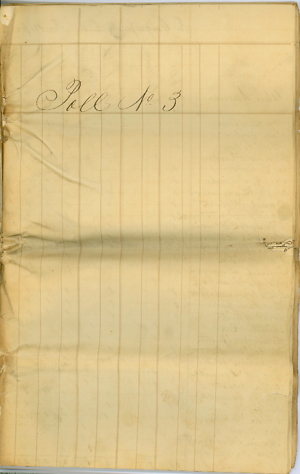 Poll No 3